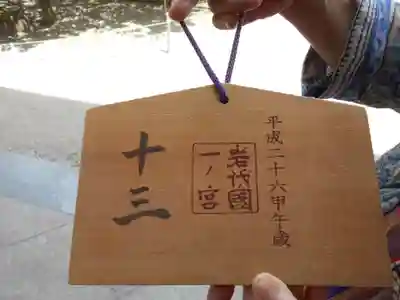 平成二十六甲午歳
岩代國
一ノ宮
十三